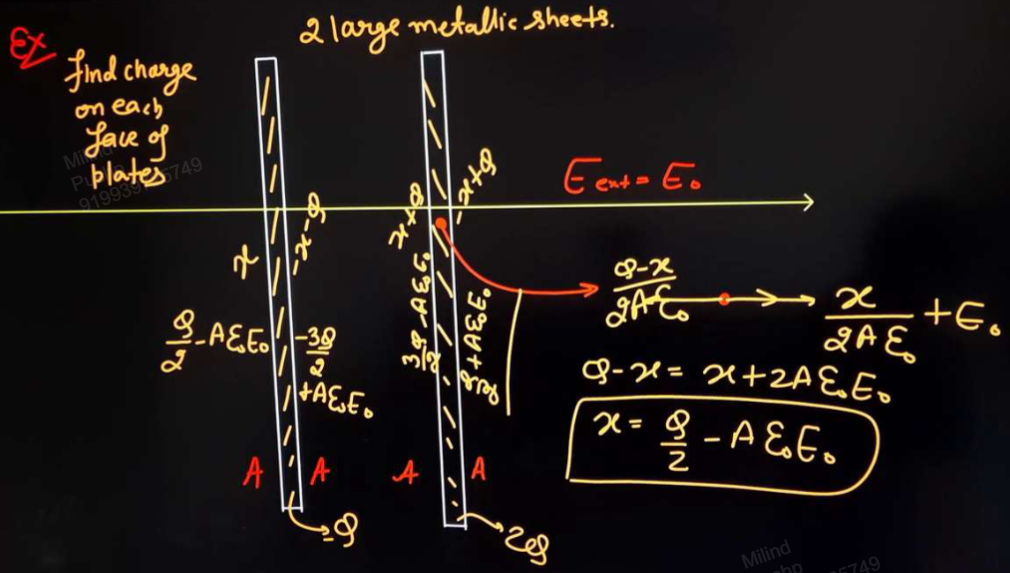 Ex
2 large metallic sheets.
find charge
on each
face of
plates
E ext = E₀
x
-x-Q
x+Q
-x+Q
Q/2 - Aε₀E₀
-3Q/2
+Aε₀E₀
3Q/2 - Aε₀E₀
Q/2 + Aε₀E₀
Q-x/2Aε₀
x/2Aε₀ + E₀
Q-x = x+2Aε₀E₀
x = Q/2 - Aε₀E₀
A A A A
-Q
2Q
Milind